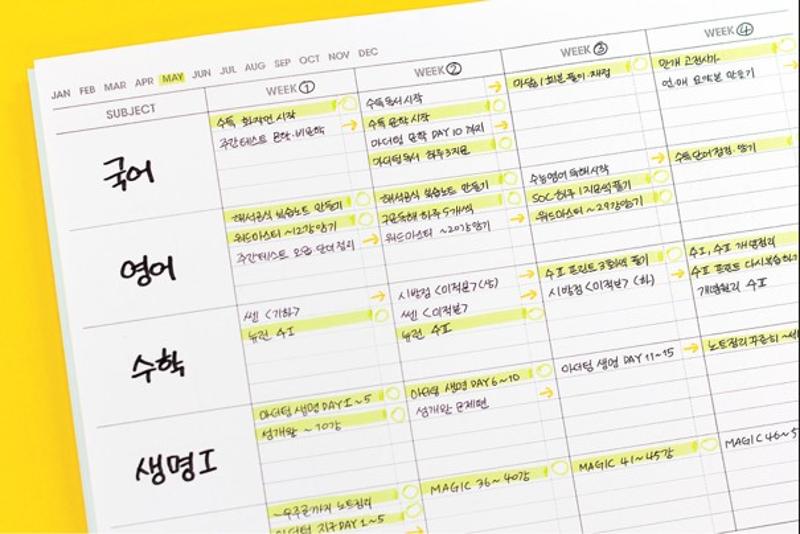 JAN FEB MAR APR MAY JUN JUL AUG SEP OCT NOV DEC
SUBJECT WEEK ① WEEK ② WEEK ③ WEEK ④
국어
수특 화작언 시작
주간테스트 문학·비문학
수특독서 시작
수특 문학 시작
마더텅 문학 DAY 10 까지
마더텅독서 하루 3지문
마닳 1회분 풀이·채점
만개
언·매 요약본 만들기
영어
해석공식 복습노트 만들기
워드마스터 ~12강암기
주간테스트 오답 단어정리
해석공식 복습노트 만들기
구문독해 하루 5개씩
워드마스터 ~20강암기
수능영어 독해 시작
SOC 하루 1지문씩 풀기
워드마스터 ~29강암기
수특단어 점검·암기
수학
쎈 <기하>
뉴런 수I
시발점 <이적분?(상)
쎈 <이적분?
뉴런 수II
수II 프린트 3회씩 풀기
시발점 <이적분? (하)
수I, 수II 개념정리
수II 프린트 다시복습하기
개념원리 수II
생명I
마더텅 생명 DAY 1~5
섬개완 ~10강
마더텅 생명 DAY 6~10
섬개완 문제편
마더텅 생명 DAY 11~15
노트정리 꾸준히
노트정리
지구 DAY 1~5
MAGIC 36~40강
MAGIC 41~45강
MAGIC 46~5